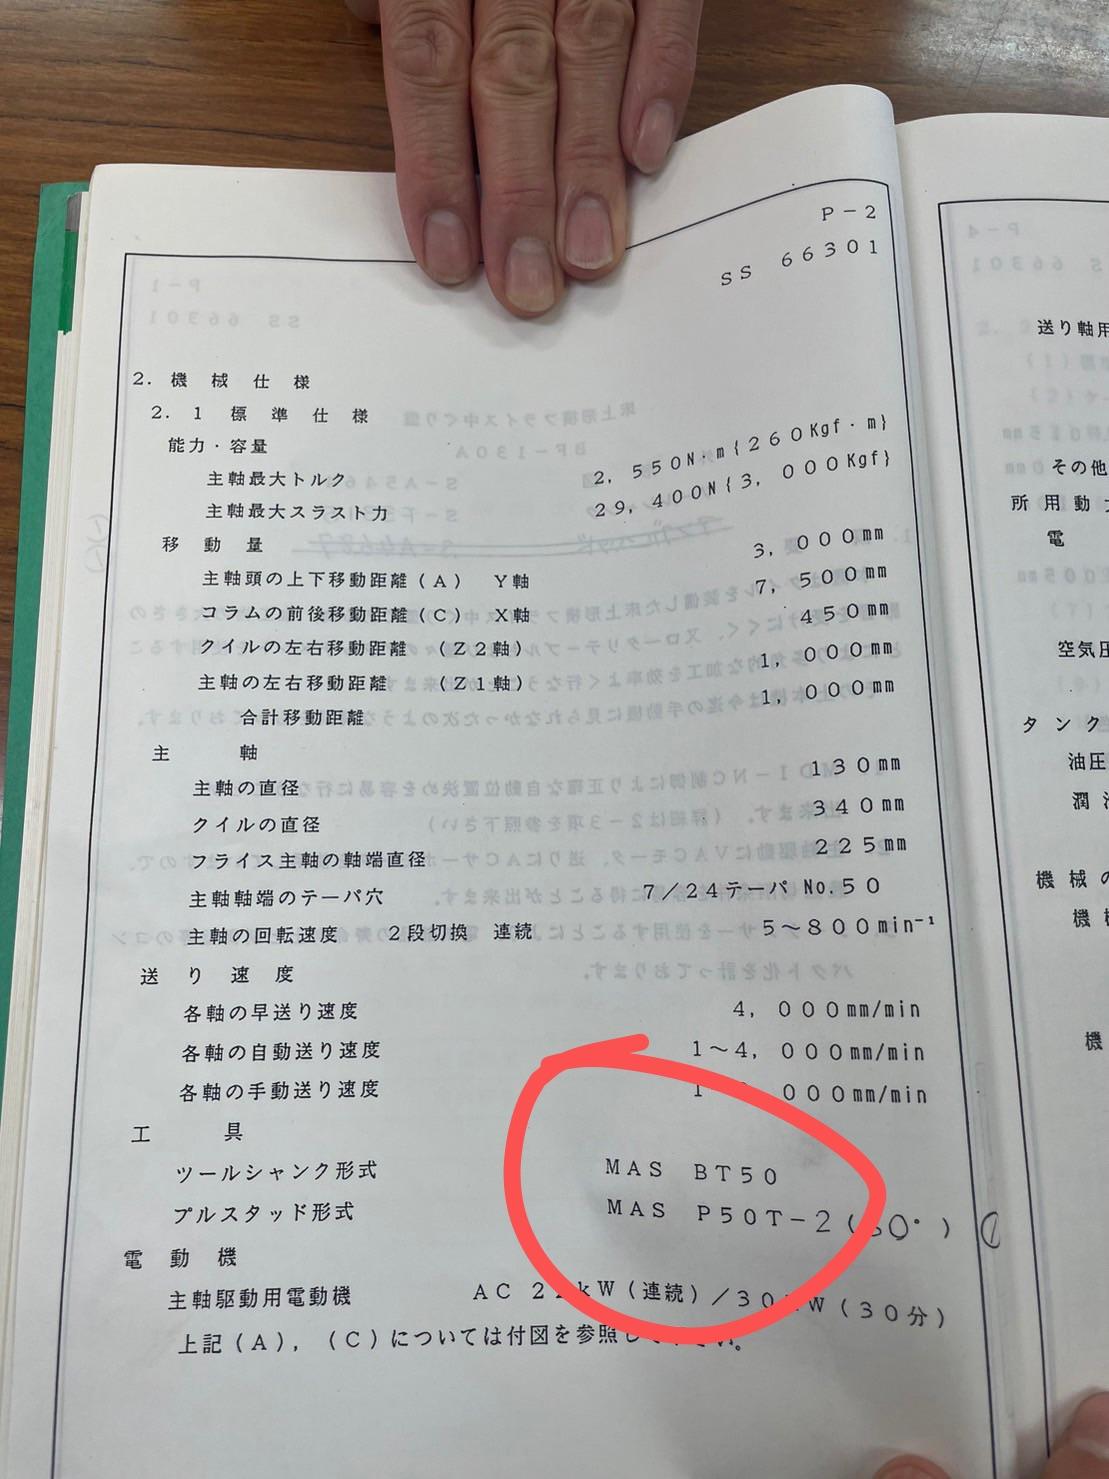 P-2
SS 66301
2. 機械仕様
2.1 標準仕様
能力・容量
主軸最大トルク 2,550N・m{260Kgf・m}
主軸最大スラスト力 29,400N{3,000Kgf}
移動量
主軸頭の上下移動距離(A) Y軸 3,000mm
コラムの前後移動距離(C) X軸 7,500mm
クイルの左右移動距離 (Z2軸) 450mm
主軸の左右移動距離 (Z1軸) 1,000mm
合計移動距離 1,000mm
主軸
主軸の直径 130mm
クイルの直径 340mm
フライス主軸の軸端直径 225mm
主軸軸端のテーパ穴 7/24テーパ No.50
主軸の回転速度 2段切換 連続 5~800min⁻¹
送り速度
各軸の早送り速度 4,000mm/min
各軸の自動送り速度 1~4,000mm/min
各軸の手動送り速度 000mm/min
工具
ツールシャンク形式 MAS BT50
プルスタッド形式 MAS P50T-2
電動機
主軸駆動用電動機 AC kW(連続)/30 W(30分)
上記(A),(C)については付図を参照
送り軸用
その他
所用動
電
空気圧
タンク
油圧
潤
機械の
機
機